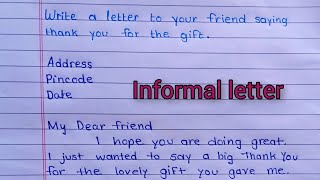 Write a letter to your friend saying
thank you for the gift.
Address
Pincode
Date
Informal letter
My Dear friend
I hope you are doing great.
I just wanted to say a big Thank You
for the lovely gift you gave me.